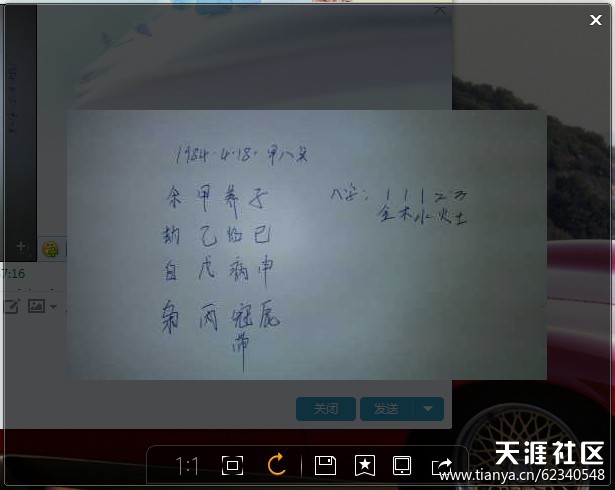 1984.4.18.
杀 甲 养 子
八字: 1 1 1 2 3
金木水火土
劫 己 临 巳
自 戊 病 申
枭 丙 冠 辰
带
7:16
关闭 发送
1:1
天涯社区
www.tianya.cn/62340548